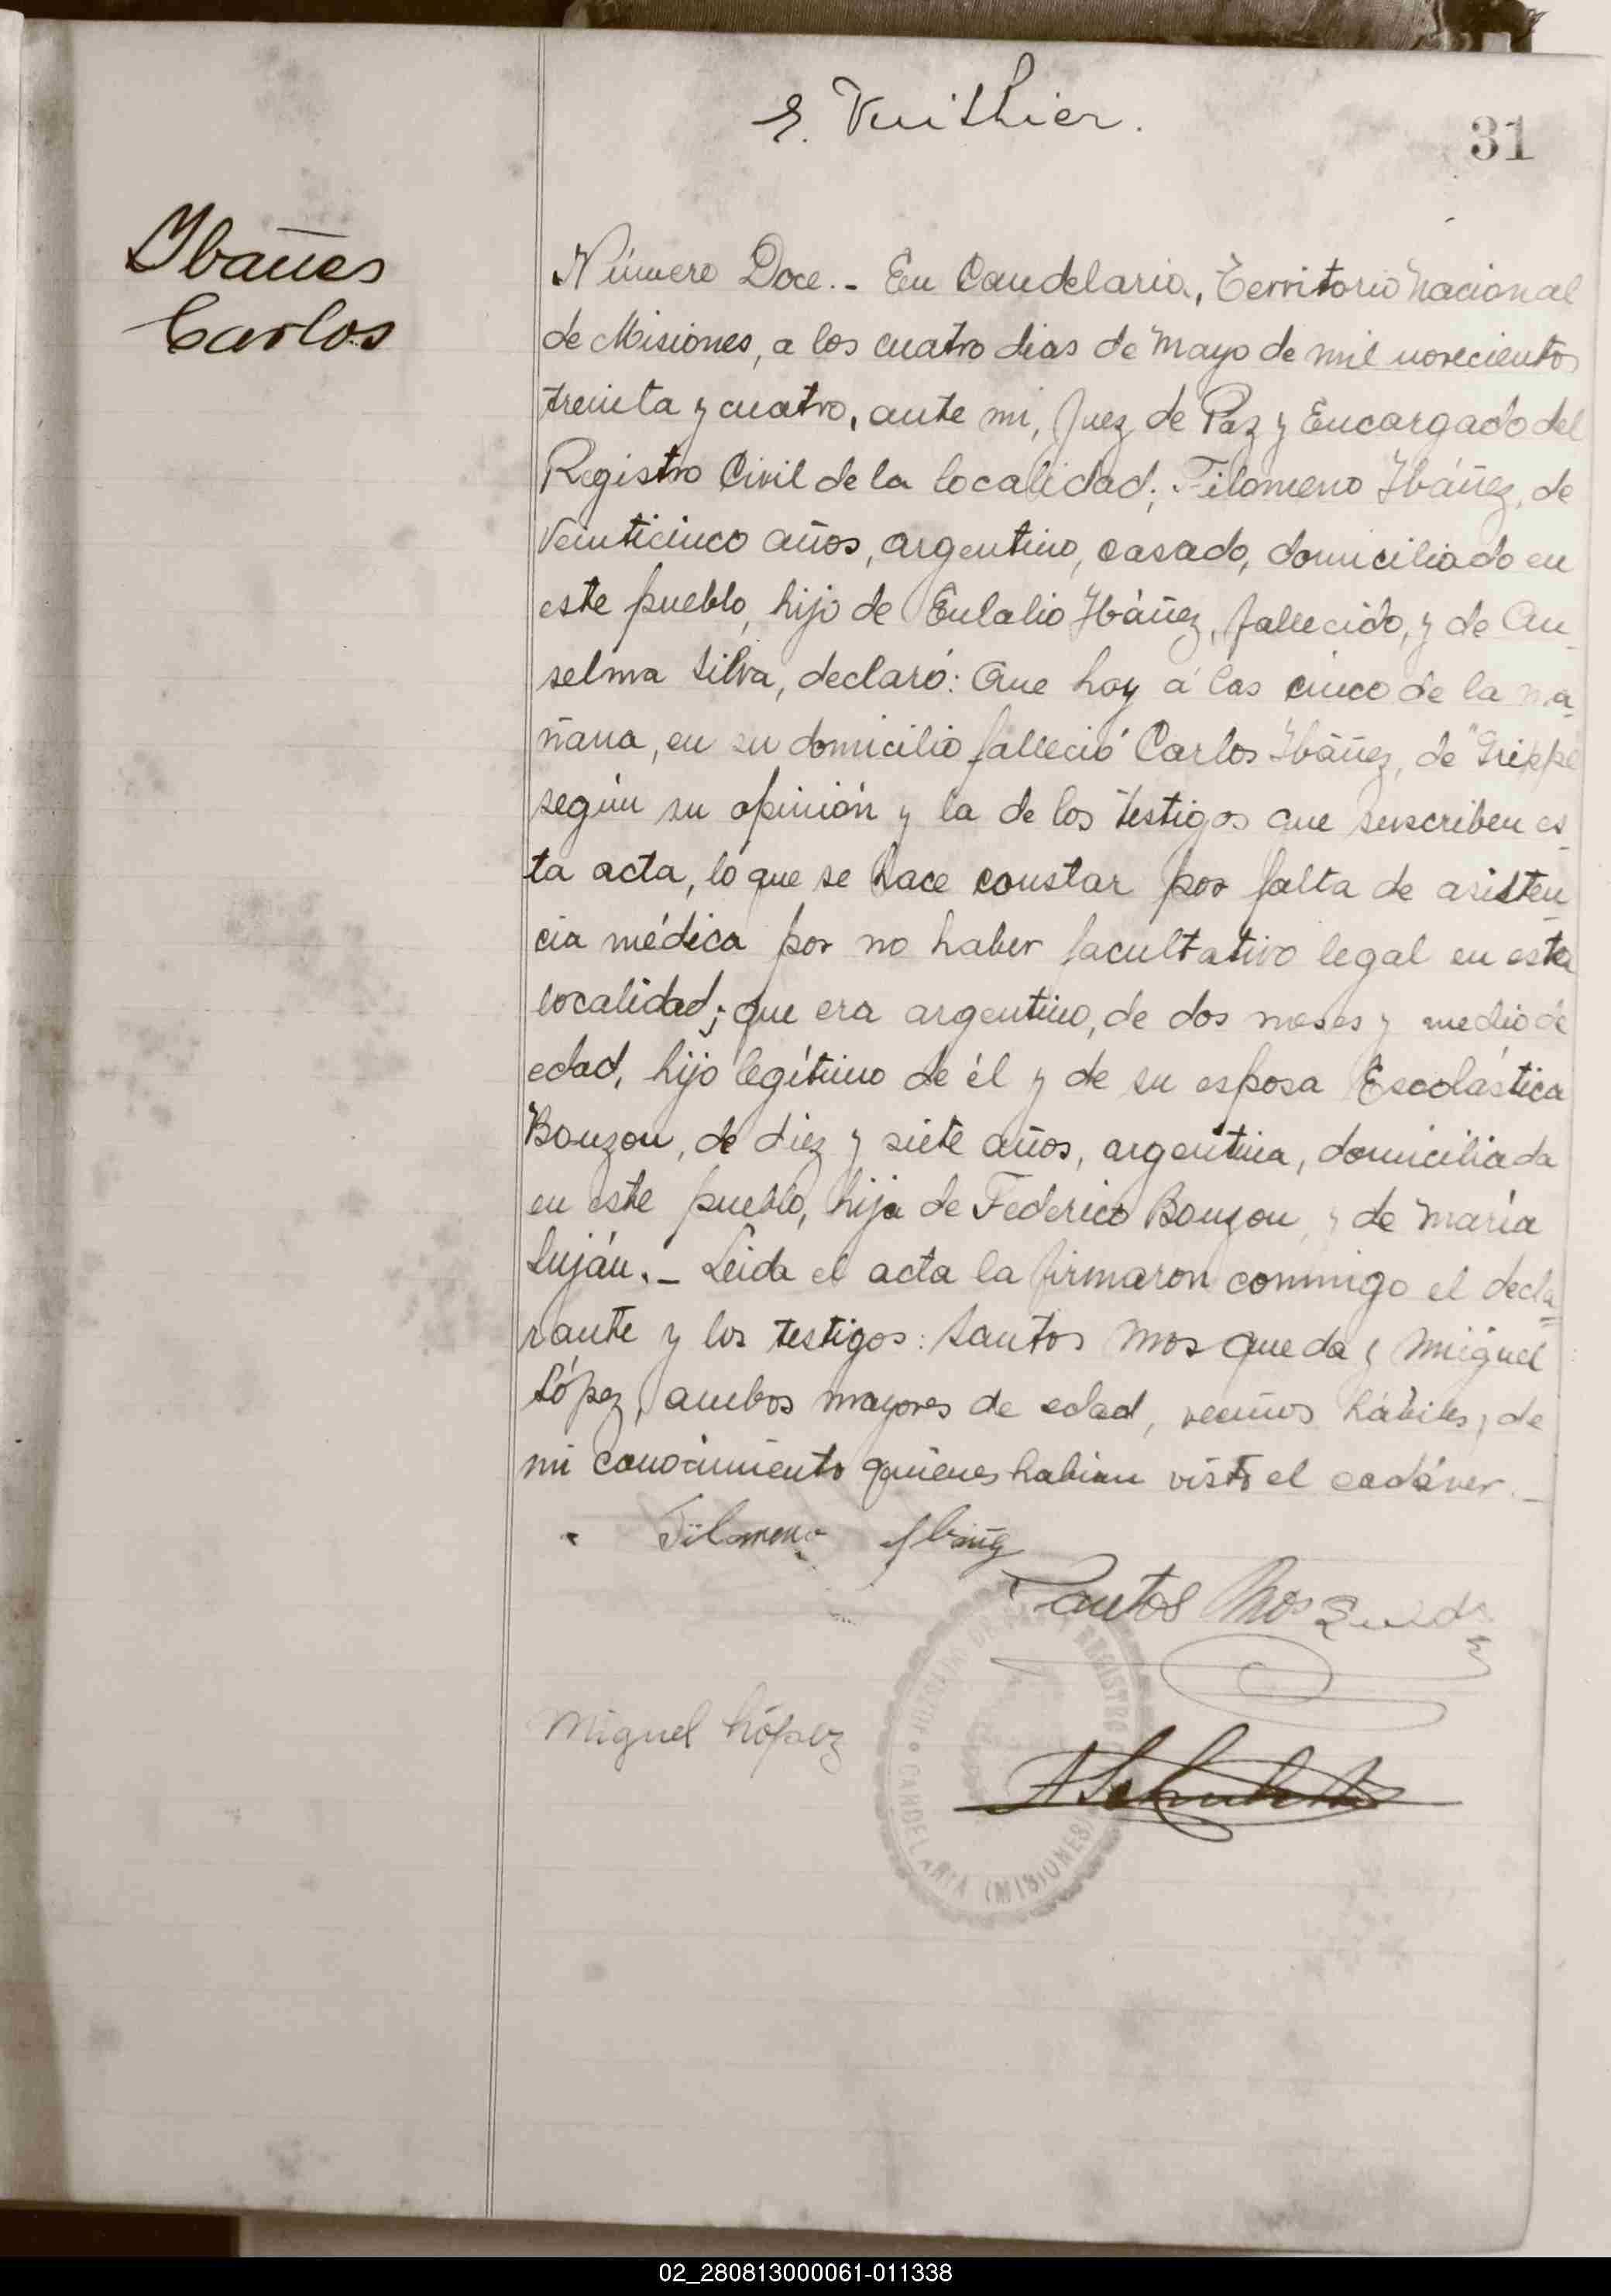 E. Vuithier.
31
Ybañes
Carlos
Número Doce.- En Candelaria, Territorio Nacional
de Misiones, a los cuatro dias de Mayo de mil novecientos
treinta y cuatro, ante mi, Juez de Paz y Encargado del
Registro Civil de la localidad; Filomeno Ybáñez, de
veinticinco años, argentino, casado, domiciliado en
este pueblo, hijo de Eulalio Ybáñez, fallecido, y de An-
selma Silva, declaró: Que hoy á las cinco de la ma-
ñana, en su domicilio falleció Carlos Ybáñez, de "Grippe"
según su opinión y la de los testigos que suscriben es-
ta acta, lo que se hace constar por falta de asisten-
cia médica por no haber facultativo legal en esta
localidad; que era argentino, de dos meses y medio de
edad, hijo legítimo de él y de su esposa Escolástica
Bouzon, de diez y siete años, argentina, domiciliada
en este pueblo, hija de Federico Bouzon, y de María
Luján.- Leida el acta la firmaron conmigo el decla-
rante y los testigos: Santos Mosqueda y Miguel
López, ambos mayores de edad, vecinos hábiles, de
mi conocimiento quienes habian visto el cadáver.-
Filomeno Ybañez
Santos Mosqueda
Miguel López
JUZGADO DE PAZ Y REGISTRO CANDELARIA (MISIONES)
02_280813000061-011338